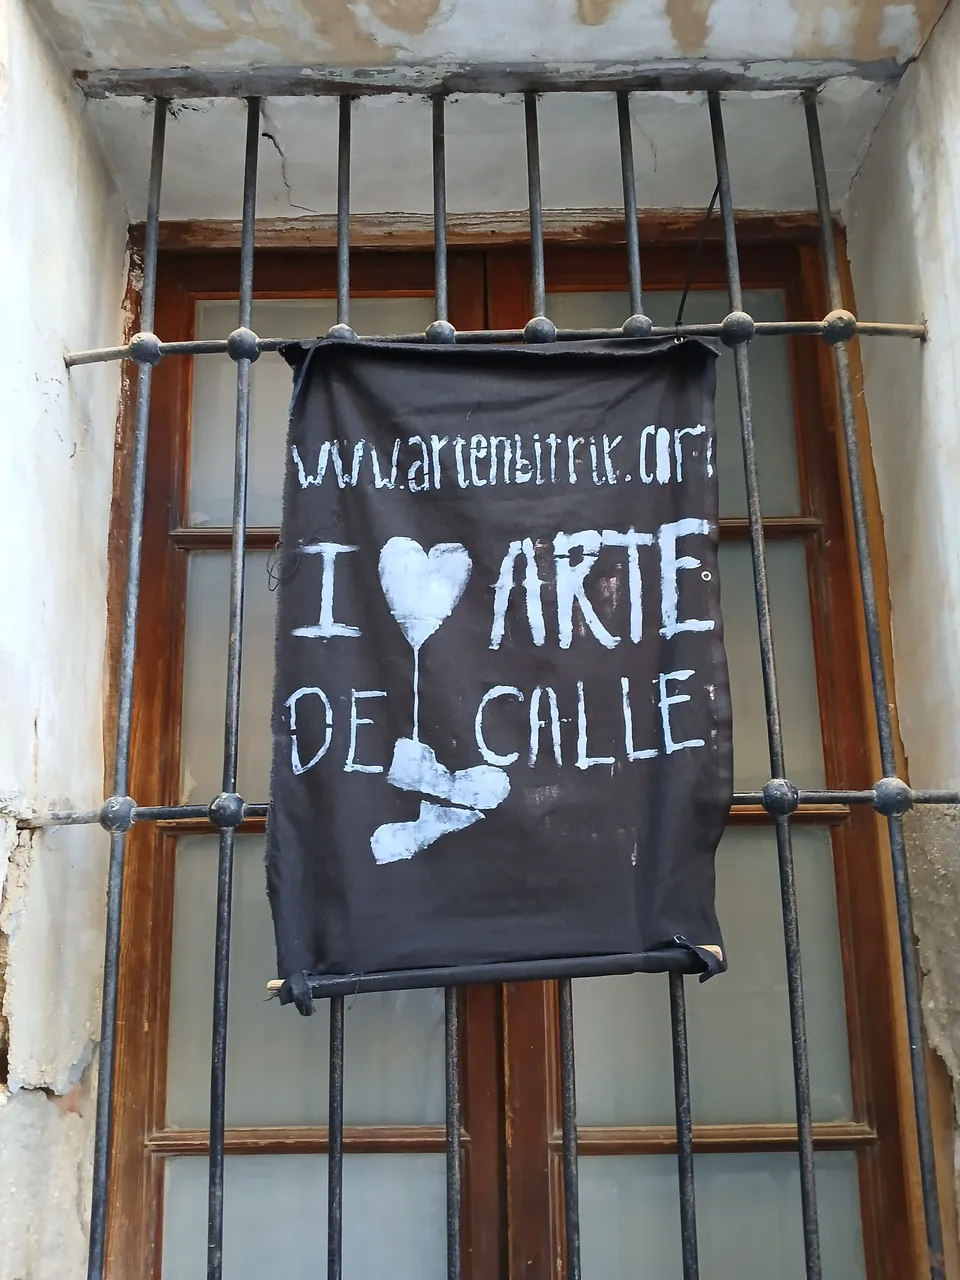 www.artenbitrir.com
I ARTE
DE CALLE